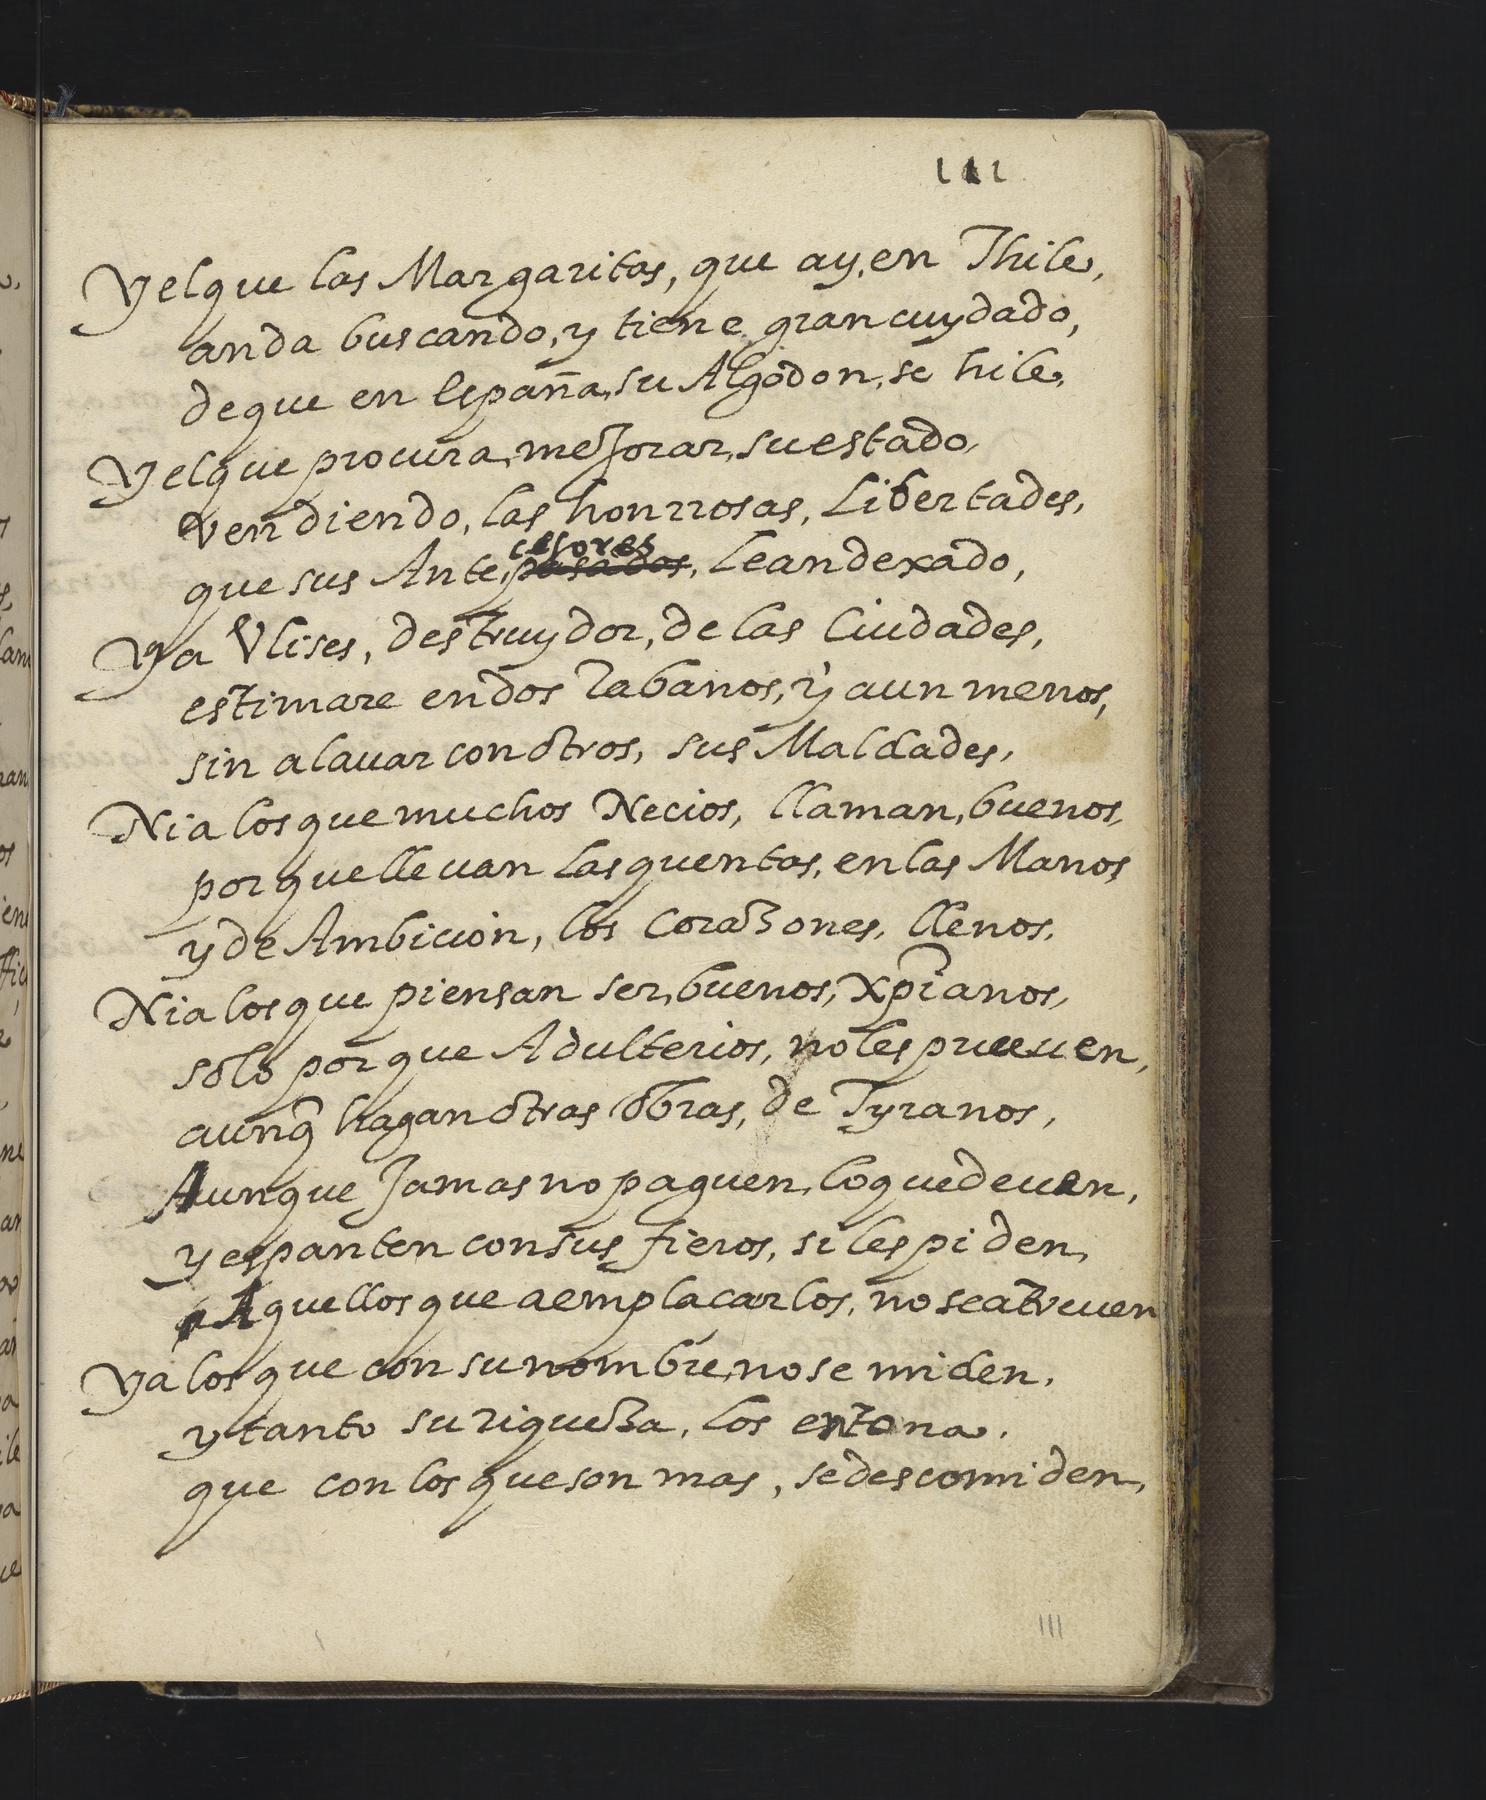 111
Y el que las Margaritas, que ay, en Thile,
anda buscando, y tiene gran cuydado,
de que en España, su Algodon, se hile,
Y el que procura, mejorar, su estado,
Vendiendo, las honrrosas, Libertades,
que sus Ante, pasados, le an dexado,
cesores
Y a Vlises, destruydor, de las Ciudades,
estimare en dos rabanos, y aun menos,
sin alauar con otros, sus Maldades,
Ni a los que muchos Necios, llaman, buenos,
porque lleuan las quentas, en las Manos
y de Ambicion, los Corazones, llenos,
Ni a los que piensan ser, buenos, Xpianos,
solo por que Adulterios, no les prueuen,
aunq̃ hagan otras obras, de Tyranos,
Aunque Jamas no paguen, lo que deuen,
y espanten con sus fieros, si les piden,
Aquellos que a emplacarlos, no se atreuen
Y a los que con su nombre, no se miden,
y tanto su riqueza, los entona,
que con los que son mas, se descomiden,
111